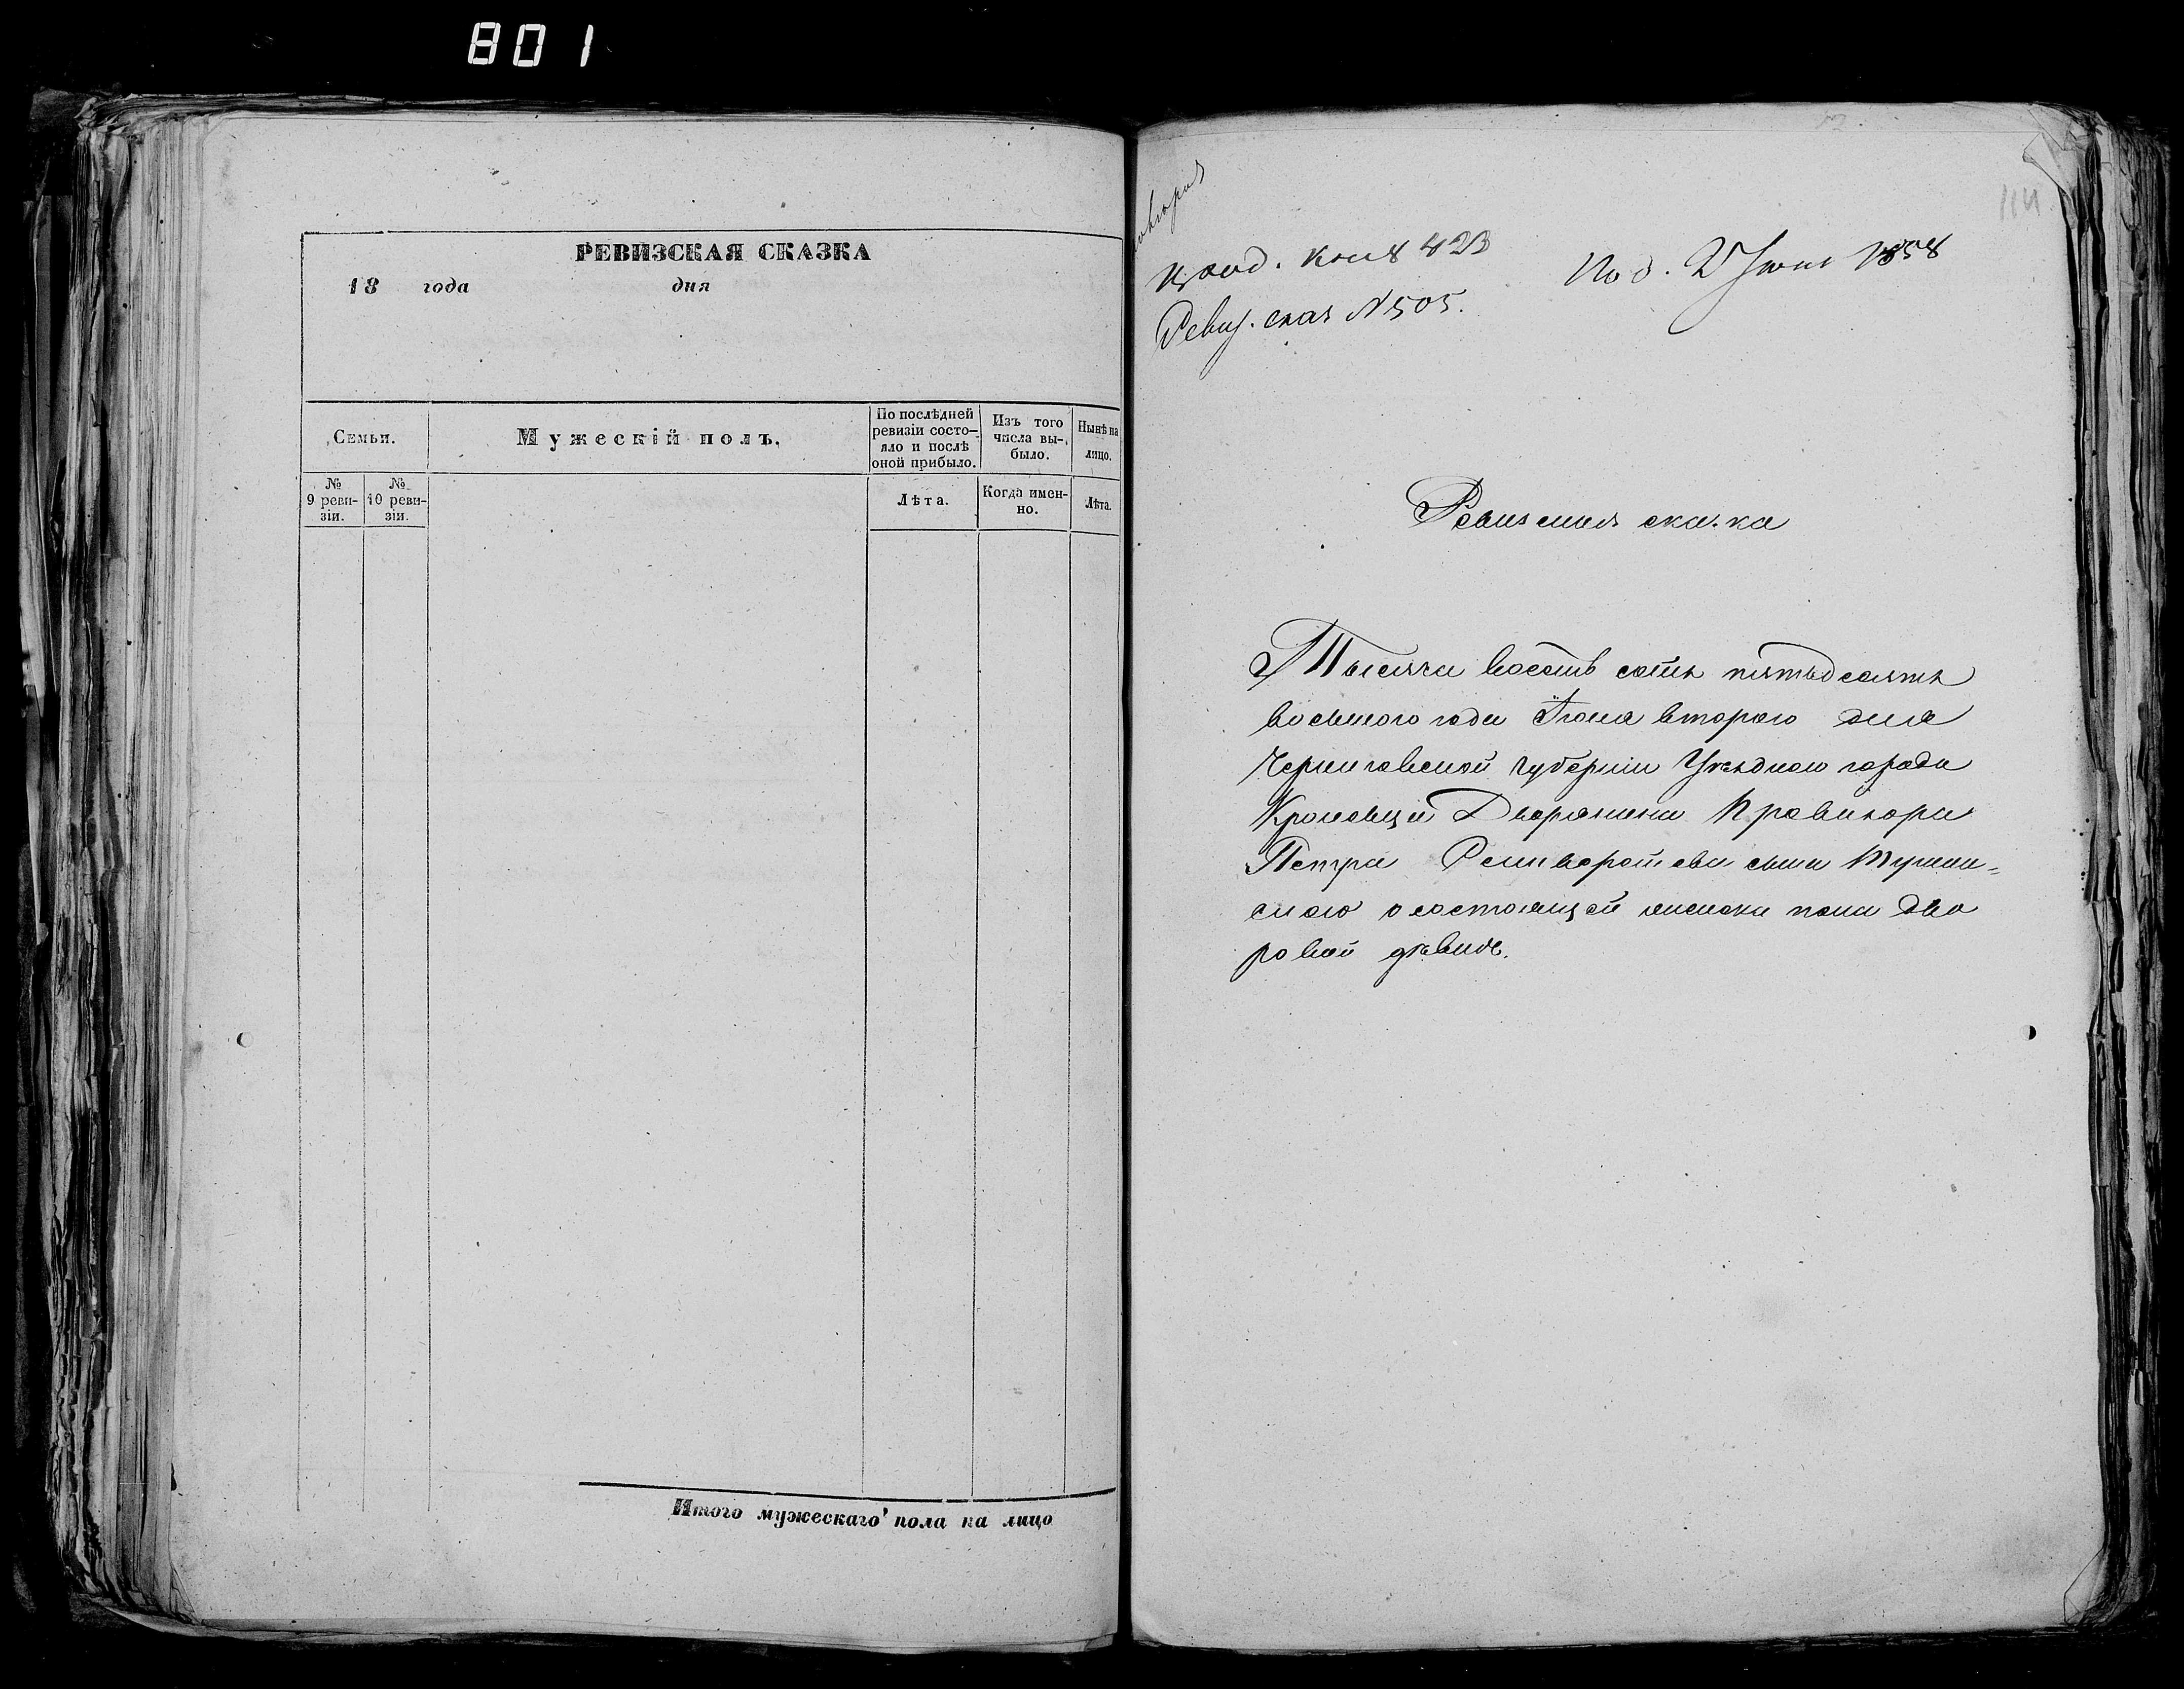 801
РЕВИЗСКАЯ СКАЗКА
18 года дня
Семьи.
Мужескій полъ.
По послѣдней ревизіи состо-
яло и послѣ
оной прибыло.
Изъ того
числа вы-
было.
Нынѣ на
лицо.
№
9 реви-
зіи.
№
10 реви-
зіи.
Лѣта.
Когда имен-
но.
Лѣта.
Итого мужескаго пола на лицо
114
423
Под. 2 Іюня 1858
Ревиз. сказ N 505.
Ревизская сказка
Тысяча восемь сотъ пятьдесятъ
восьмого года Іюня второго дня
Черниговской губерніи Уѣзднаго города
Кролевца Дворянина Провизора
Петра сына Туман=
скаго о состоящей женска пола дво
ровой дѣвкѣ.